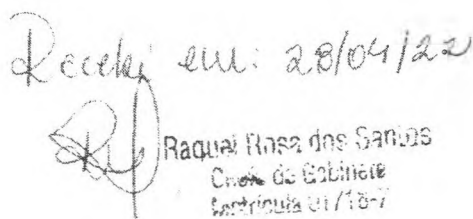 Recebi em: 28/04/22
Raquel Rosa dos Santos
Chefe de Gabinete
Matrícula